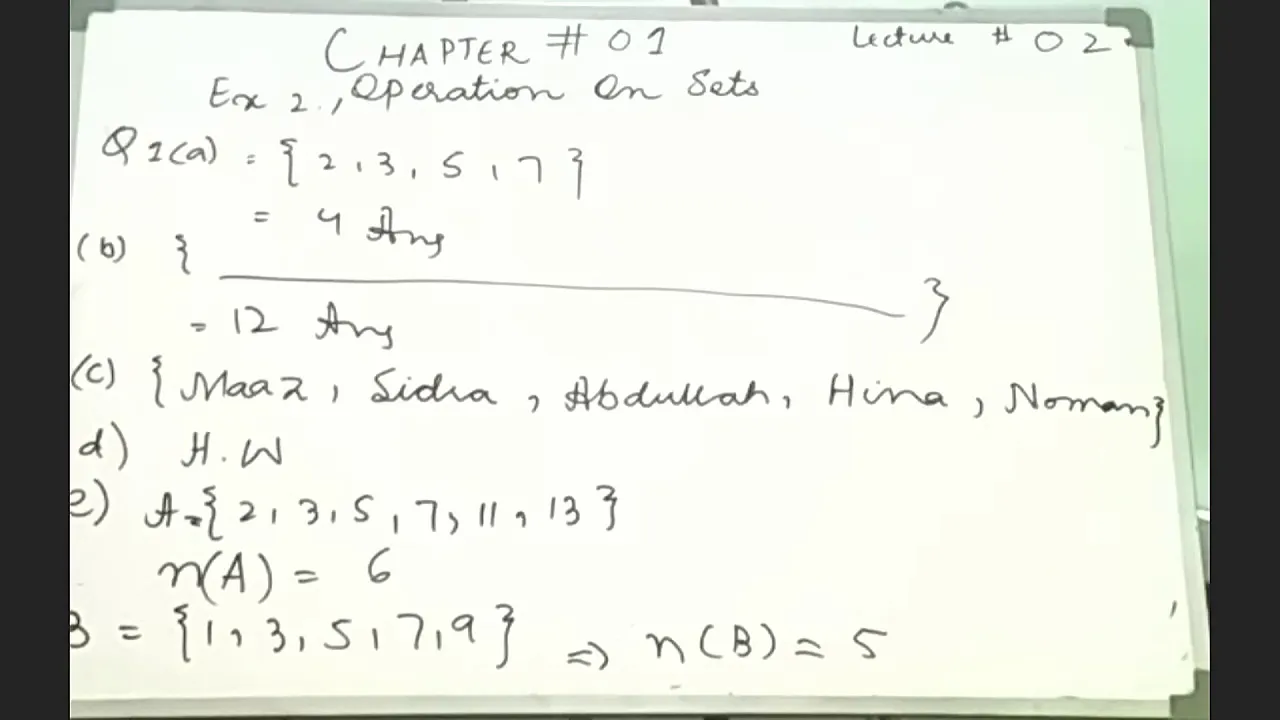 CHAPTER # 01
Lecture # 02
Ex 2., Operation On Sets
Q 1(a) = { 2, 3, 5, 7 }
= 4 Ans
(b) { }
= 12 Ans
(c) { Maaz, Sidra, Abdullah, Hina, Noman}
d) H.W
e) A = { 2, 3, 5, 7, 11, 13 }
n(A) = 6
B = {1, 3, 5, 7, 9} ⇒ n(B) = 5